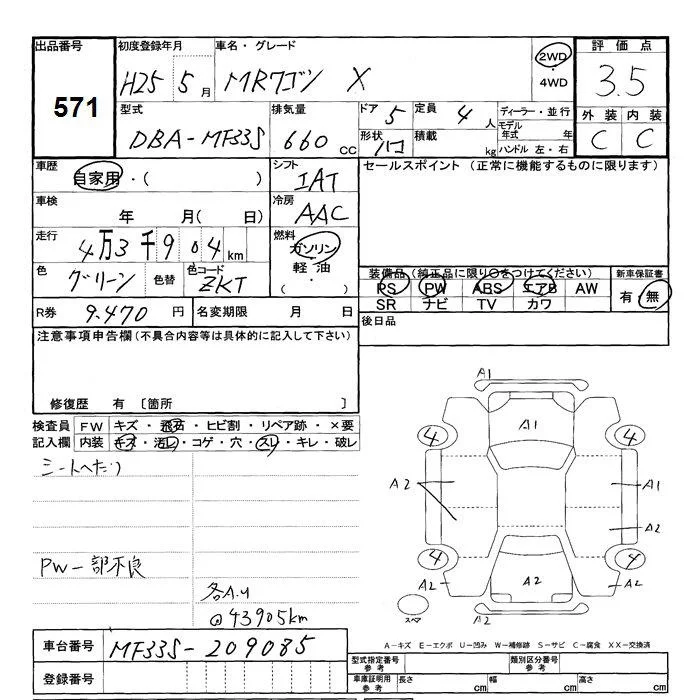 出品番号 初度登録年月 車名・グレード 評価点
571 H25 5月 MRワゴン X 2WD・4WD 3.5
型式 排気量 ドア 5 定員 4人 ディーラー・並行 外装 内装
DBA-MF33S 660cc 形状 ハコ 積載 kg モデル年式 年 ハンドル 左・右 C C
車歴 自家用・( ) シフト IAT セールスポイント (正常に機能するものに限ります)
車検 年 月( 日) 冷房 AAC
走行 4万3千904km 燃料 ガソリン
色 グリーン 色替 色コード ZKT 軽油・( ) 装備品 (純正品に限り○をつけてください) 新車保証書
PS PW ABS エアB AW 有・無
SR ナビ TV カワ
R券 9.470円 名変期限 月 日 後日品
注意事項申告欄(不具合内容等は具体的に記入して下さい)
修復歴 有 〔箇所 〕
検査員 FW キズ・飛石・ヒビ割・リペア跡・×要
記入欄 内装 キズ・汚レ・コゲ・穴・スレ・キレ・破レ
シートヘたり
PW一部不良
各A.U
@43905km
A1
A1
4 4
A2 A1
A2
4 4
A2 A2 A2
スペア A2
A-キズ E-エクボ U-凹み W-補修跡 S-サビ C-腐食 XX-交換済
車台番号 MF33S-209085 型式指定番号 参考 類別区分番号 参考
登録番号 車庫証明用 参考 長さ cm 幅 cm 高さ cm